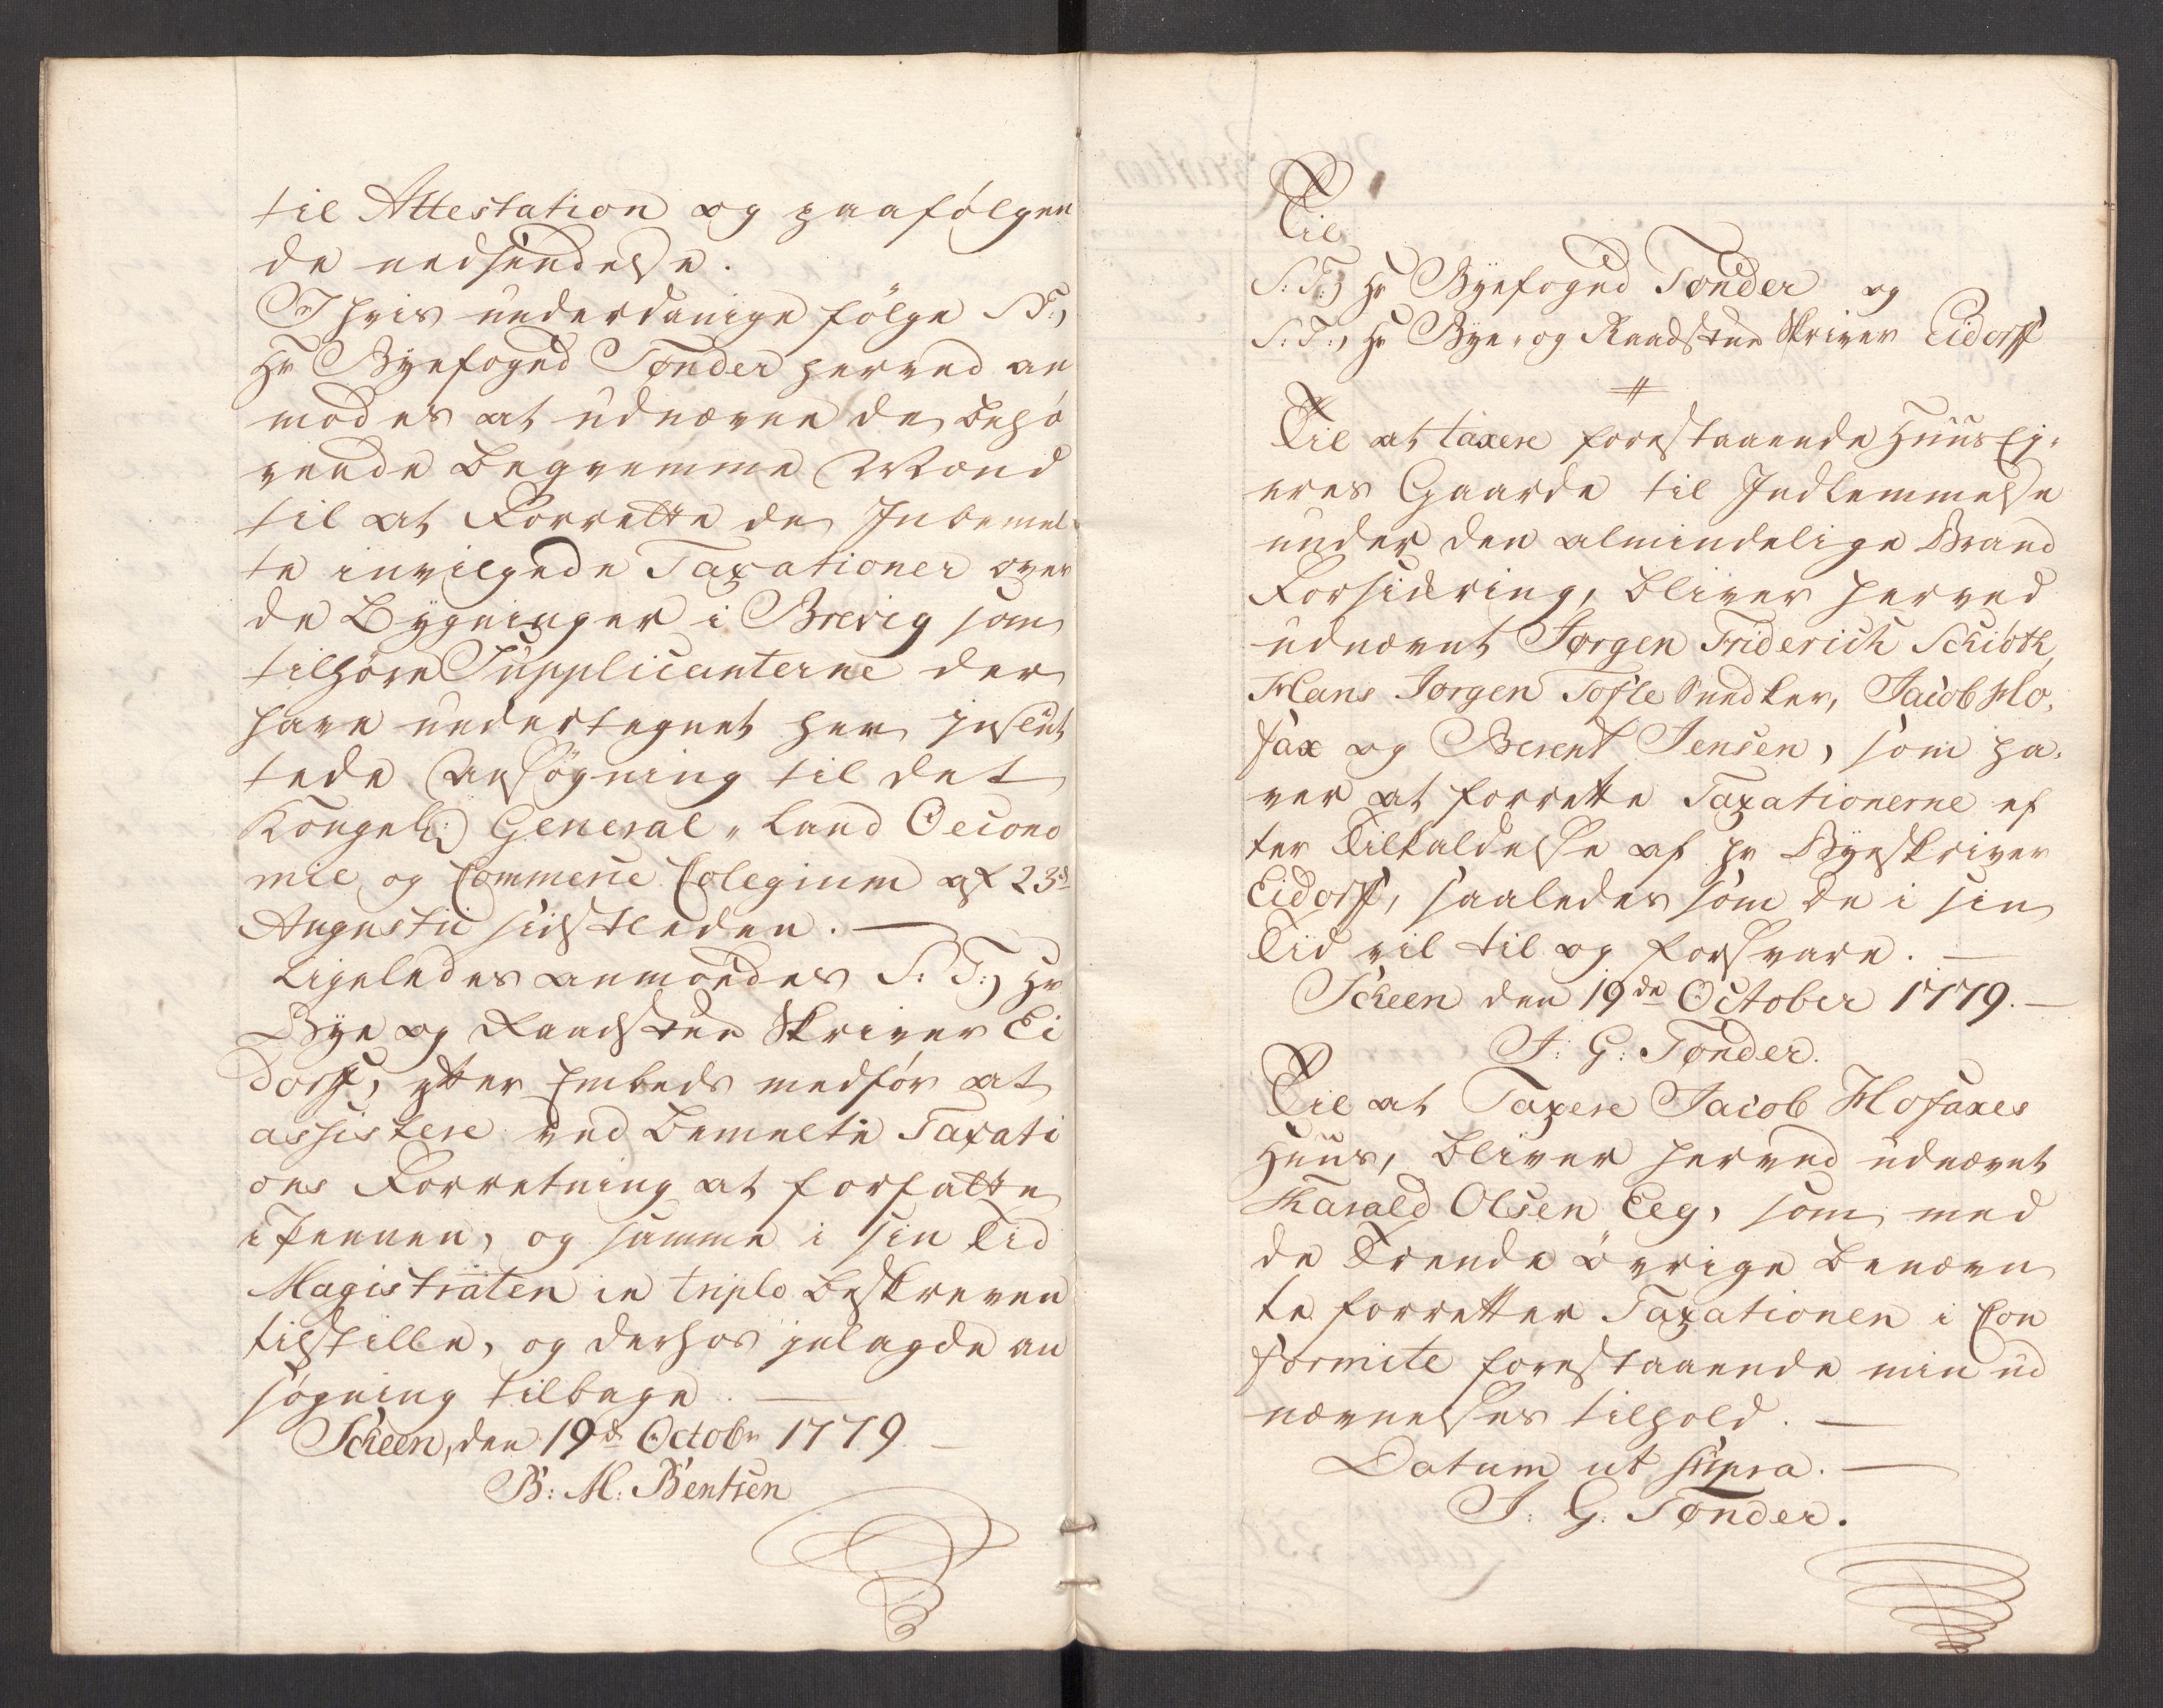 til Attestation og paafölgen
de nedsendelse.
I hvis underdanige fölge S:T:,
Hr Byefoged Tonder herved an
modes at udnævne de behö
vende beqvemme Mænd
til at Forrette de Inbemel-
te invilgede Taxationer over
de Bygninger i Brevig som
tilhöre Supplicanterne der
have undertegnet her
tede Ansögning til det
Kongel: General Land Oecono
mie og Commerce Colegium af 23d
Augustii sidstleden. —
Ligeledes anmodes S:T:, Hr
Bye og Raadstue Skriver Ei
dorff, efter Embeds medför at
assistere ved bemelte Taxati
ons Forretning at forfatte
i Pennen, og samme i sin Tid
Magistraten in triplo beskreven
tilstille, og derhos ielagde an
sögning tilbage. —
Scheen, den 19de Octobr 1779 —
B: M: Bentsen
Til
S:T:, Hr Byefoged Tonder og
S:T:, Hr Bye- og Raadstue Skriver Eidorff
Til at taxere forestaaende Huus Ej-
eres Gaarde til Indlemmelse
under den almindelige Brand
Forsicring, bliver herved
udnævnt Jørgen Friderich Schiøth,
Hans Jørgen Tofte Snedker, Jacob Ho-
fax og Berent Jensen, som ha-
ver at forrette Taxationerne ef
ter Tilkaldelse af Hr Byeskriver
Eidorff, saaledes som de i sin
Tid vil til og forsvare. —
Scheen den 19de October 1779. —
J: G: Tonder.
Til at Taxere Jacob Hofaxes
Huus, bliver herved udnævnt
Harald Olsen Eeg, som med
de Trende övrige benævn
te forretter Taxationen i Con
formite forestaaende min ud
nævnelses tilhold. —
Datum ut supra. —
J: G: Tønder.